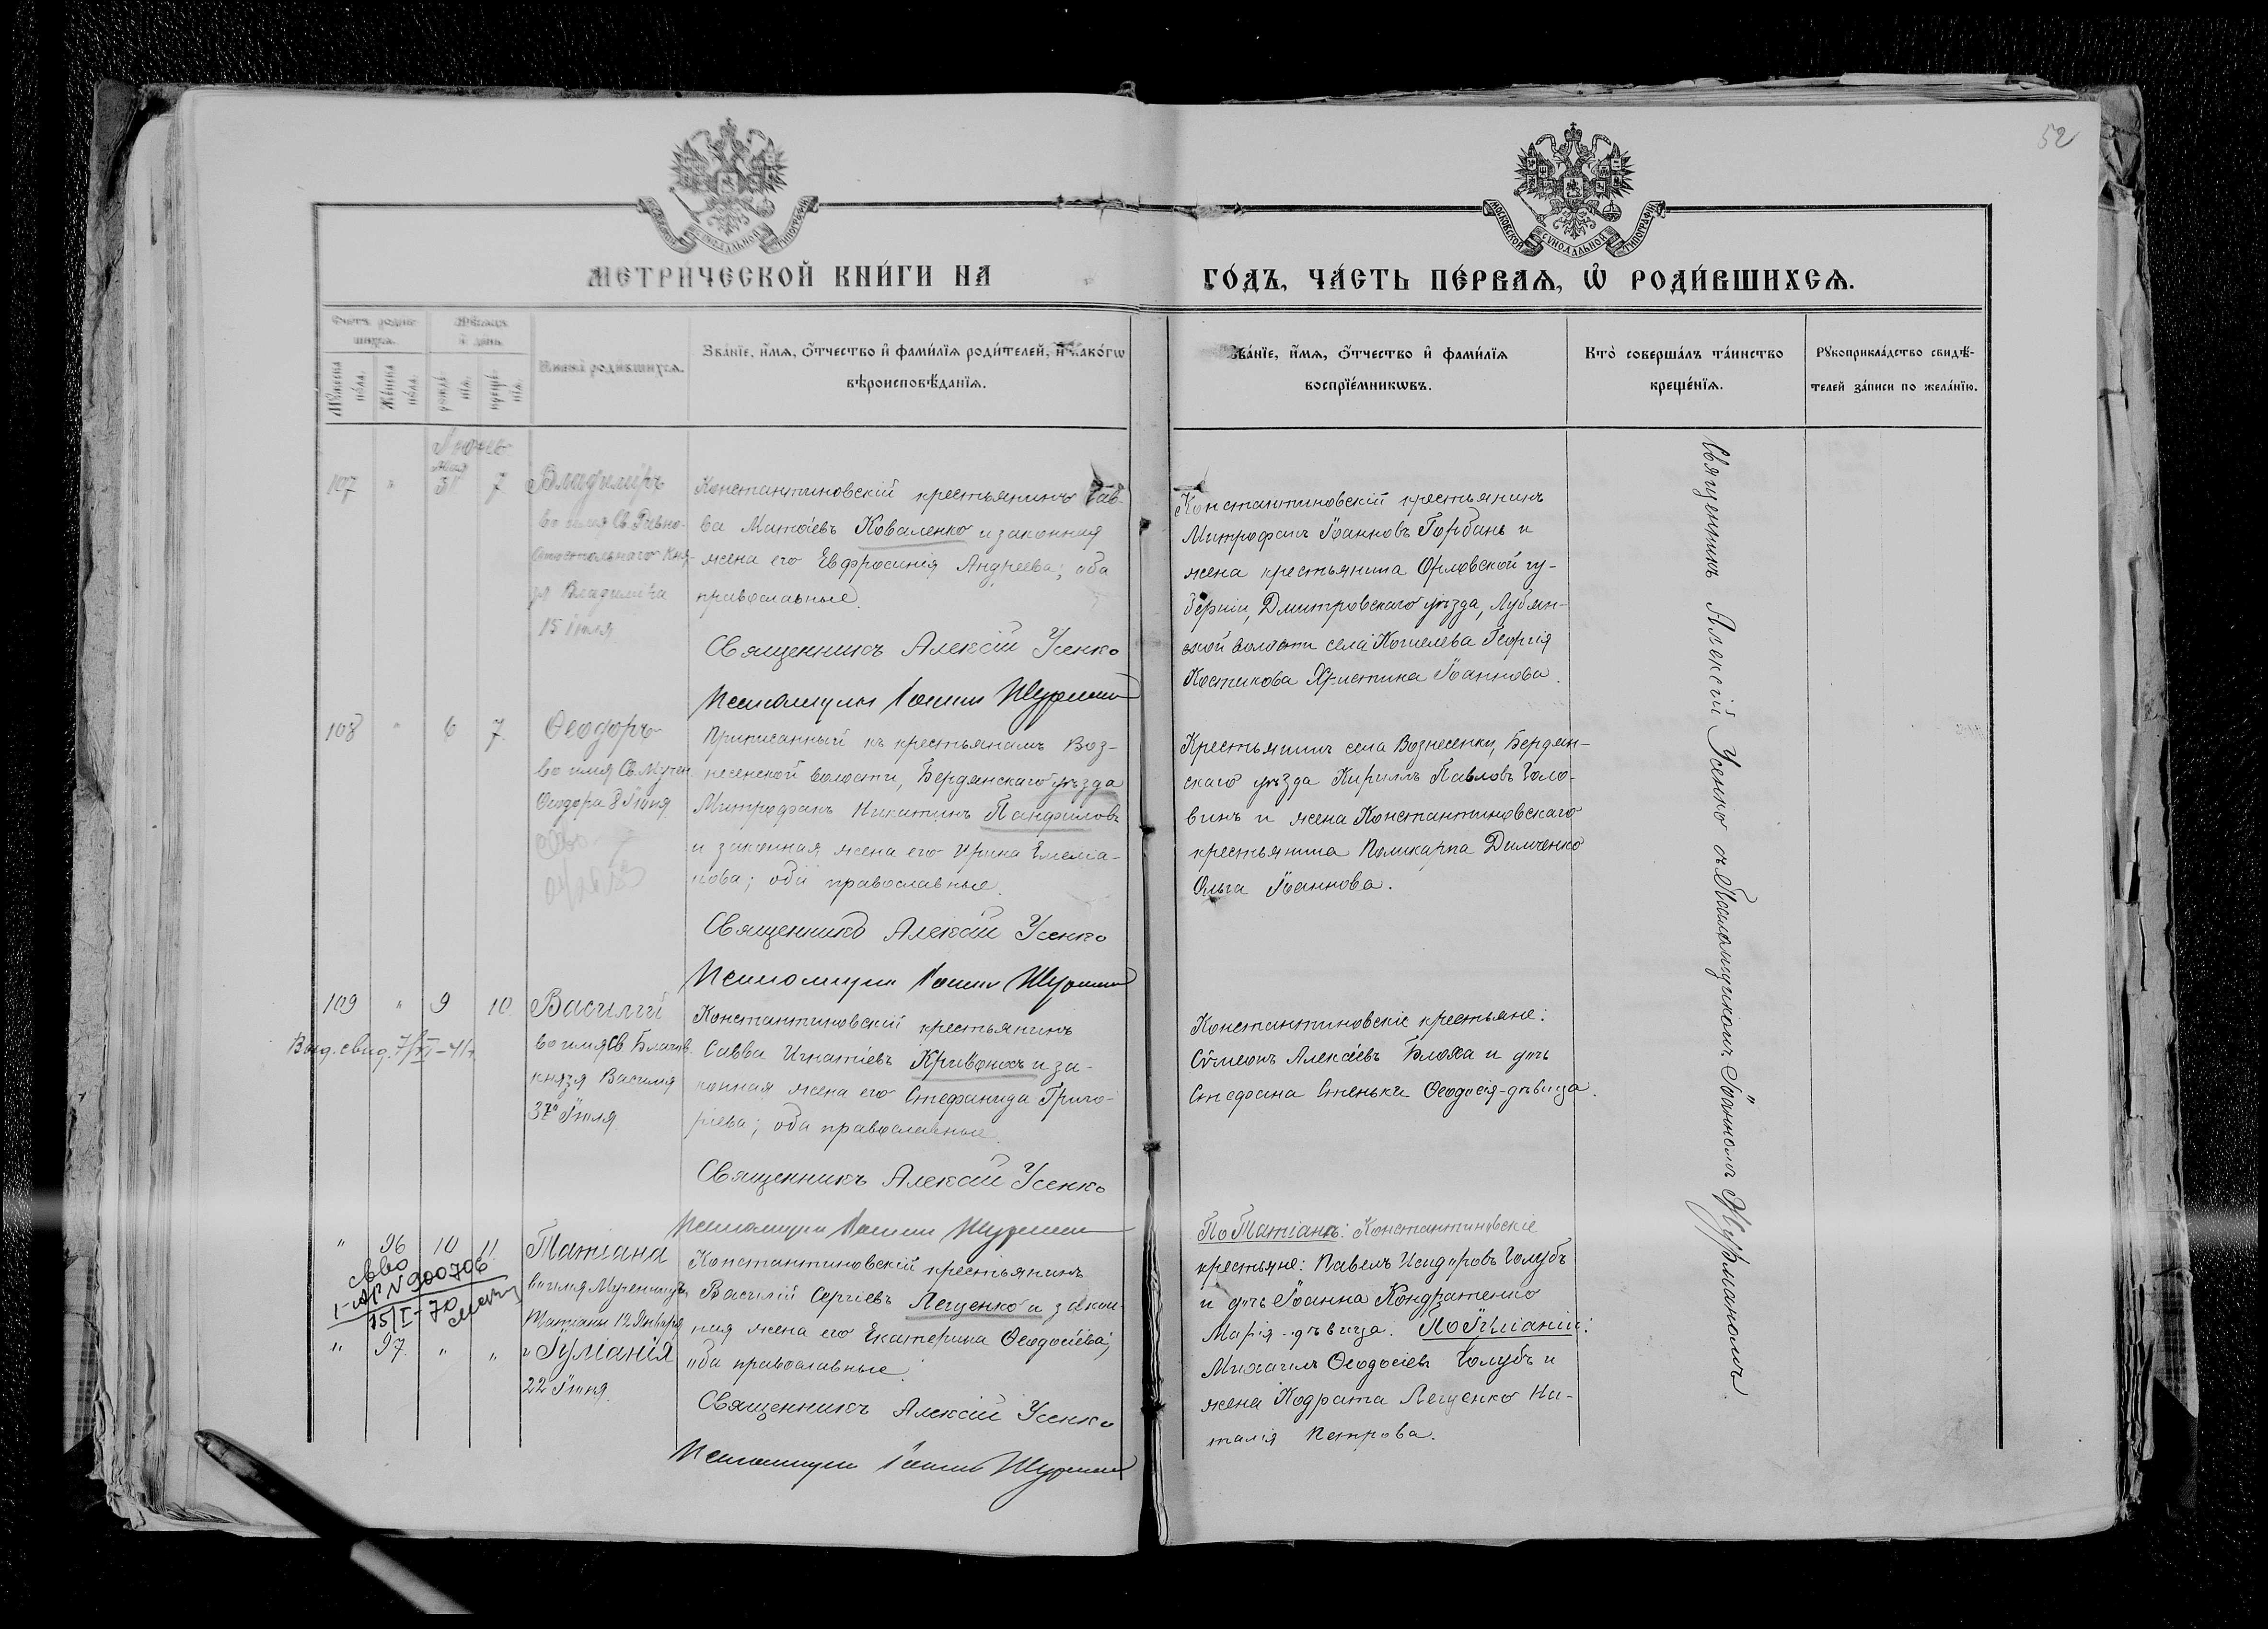 52
МОСКОВСКОЙ СУНОДАЛЬНОЙ ТИПОГРАФІИ
МЕТРИ́ЧЕСКОЙ КНИ́ГИ НА ГО́ДЪ, ЧА́СТЬ ПЕ́РВАѦ, Ѽ РОДИ́ВШИХСѦ.
Счетъ родив-
шихся.
Мѣсяцъ
и день.
Мꙋжеска
по́ла.
Же́нска
по́ла.
рожде́-
нїѧ.
креще́-
нїѧ.
Имена̀ роди́вшихсѧ.
Зва́нїе, и́мѧ, ѻ҆́тчество и҆ фами́лїѧ роди́телей, и҆ како́гѡ
вѣроисповѣ́данїѧ.
Зва́нїе, и́мѧ, ѻ҆́тчество и҆ фами́лїѧ
воспрїе́мникѡвъ.
Кто̀ соверша́лъ та́инство
креще́нїѧ.
Рꙋкоприкла́дство свидѣ́-
телей за́писи по жела́нїю.
107 " Мая 31 7
Владиміръ
во имя Св. Равно-
апостольнаго Кня-
зя Владиміра
15 Іюля
Константиновскій крестьянинъ Сав-
ва Матѳіевъ Коваленко и законная
жена его Евфросинія Андреева; оба
православные.
Священникъ Алексій Усенко
Псаломщикъ Іоаннъ
Константиновскій крестьянинъ
Митрофанъ Іоанновъ Горбань и
жена крестьянина Орловской гу-
берніи, Дмитровскаго уѣзда, Лубян-
ской волости села Кошелева Георгія
Костикова Христина Іоаннова.
108 " 6 7
Ѳеодоръ
во имя Св. Мучен.
Ѳеодора 8 Іюня
Приписанный къ крестьянамъ Воз-
несенской волости, Бердянскаго уѣзда
Митрофанъ Никитинъ Панфиловъ
и законная жена его Ирина Емеліа-
нова; оба православные.
Священникъ Алексій Усенко
Псаломщикъ Іоаннъ
Крестьянинъ села Вознесенки, Бердян-
скаго уѣзда Кириллъ Павловъ Голо-
винъ и жена Константиновскаго
крестьянина Поликарпа Димченко
Ольга Іоаннова.
109 " 9 10
Выд. свид. 7/XI-41г.
Василій
во имя Св. Благов.
князя Василія
3го Іюля
Константиновскій крестьянинъ
Савва Игнатіевъ Кривоносъ и за-
конная жена его Стефанида Григо-
ріева; оба православные.
Священникъ Алексій Усенко
Псаломщикъ Іоаннъ
Константиновскіе крестьяне:
Сѵмеонъ Алексіевъ Блоха и дочь
Стефана Стенька Ѳеодосія-дѣвица.
" 96 10 11
15/I-70
Татіана
во имя Мученицъ
Татіаны 12 Января
Константиновскій крестьянинъ
Василій Сергіевъ Лещенко и закон-
ная жена его Екатерина Ѳеодосіева;
оба православные.
" 97 " "
и Іуліанія
22 Іюня.
Священникъ Алексій Усенко
Псаломщикъ Іоаннъ
По Татіанѣ: Константиновскіе
крестьяне: Павелъ Исидоровъ Голубъ
и дочь Іоанна Кондратенко
Марія-дѣвица. По Іуліаніи:
Михаилъ Ѳеодосіевъ Голубъ и
жена Кодрата Лещенко На-
талія Петрова.
Священникъ Алексій Усенко съ Псаломщикомъ Іоанномъ